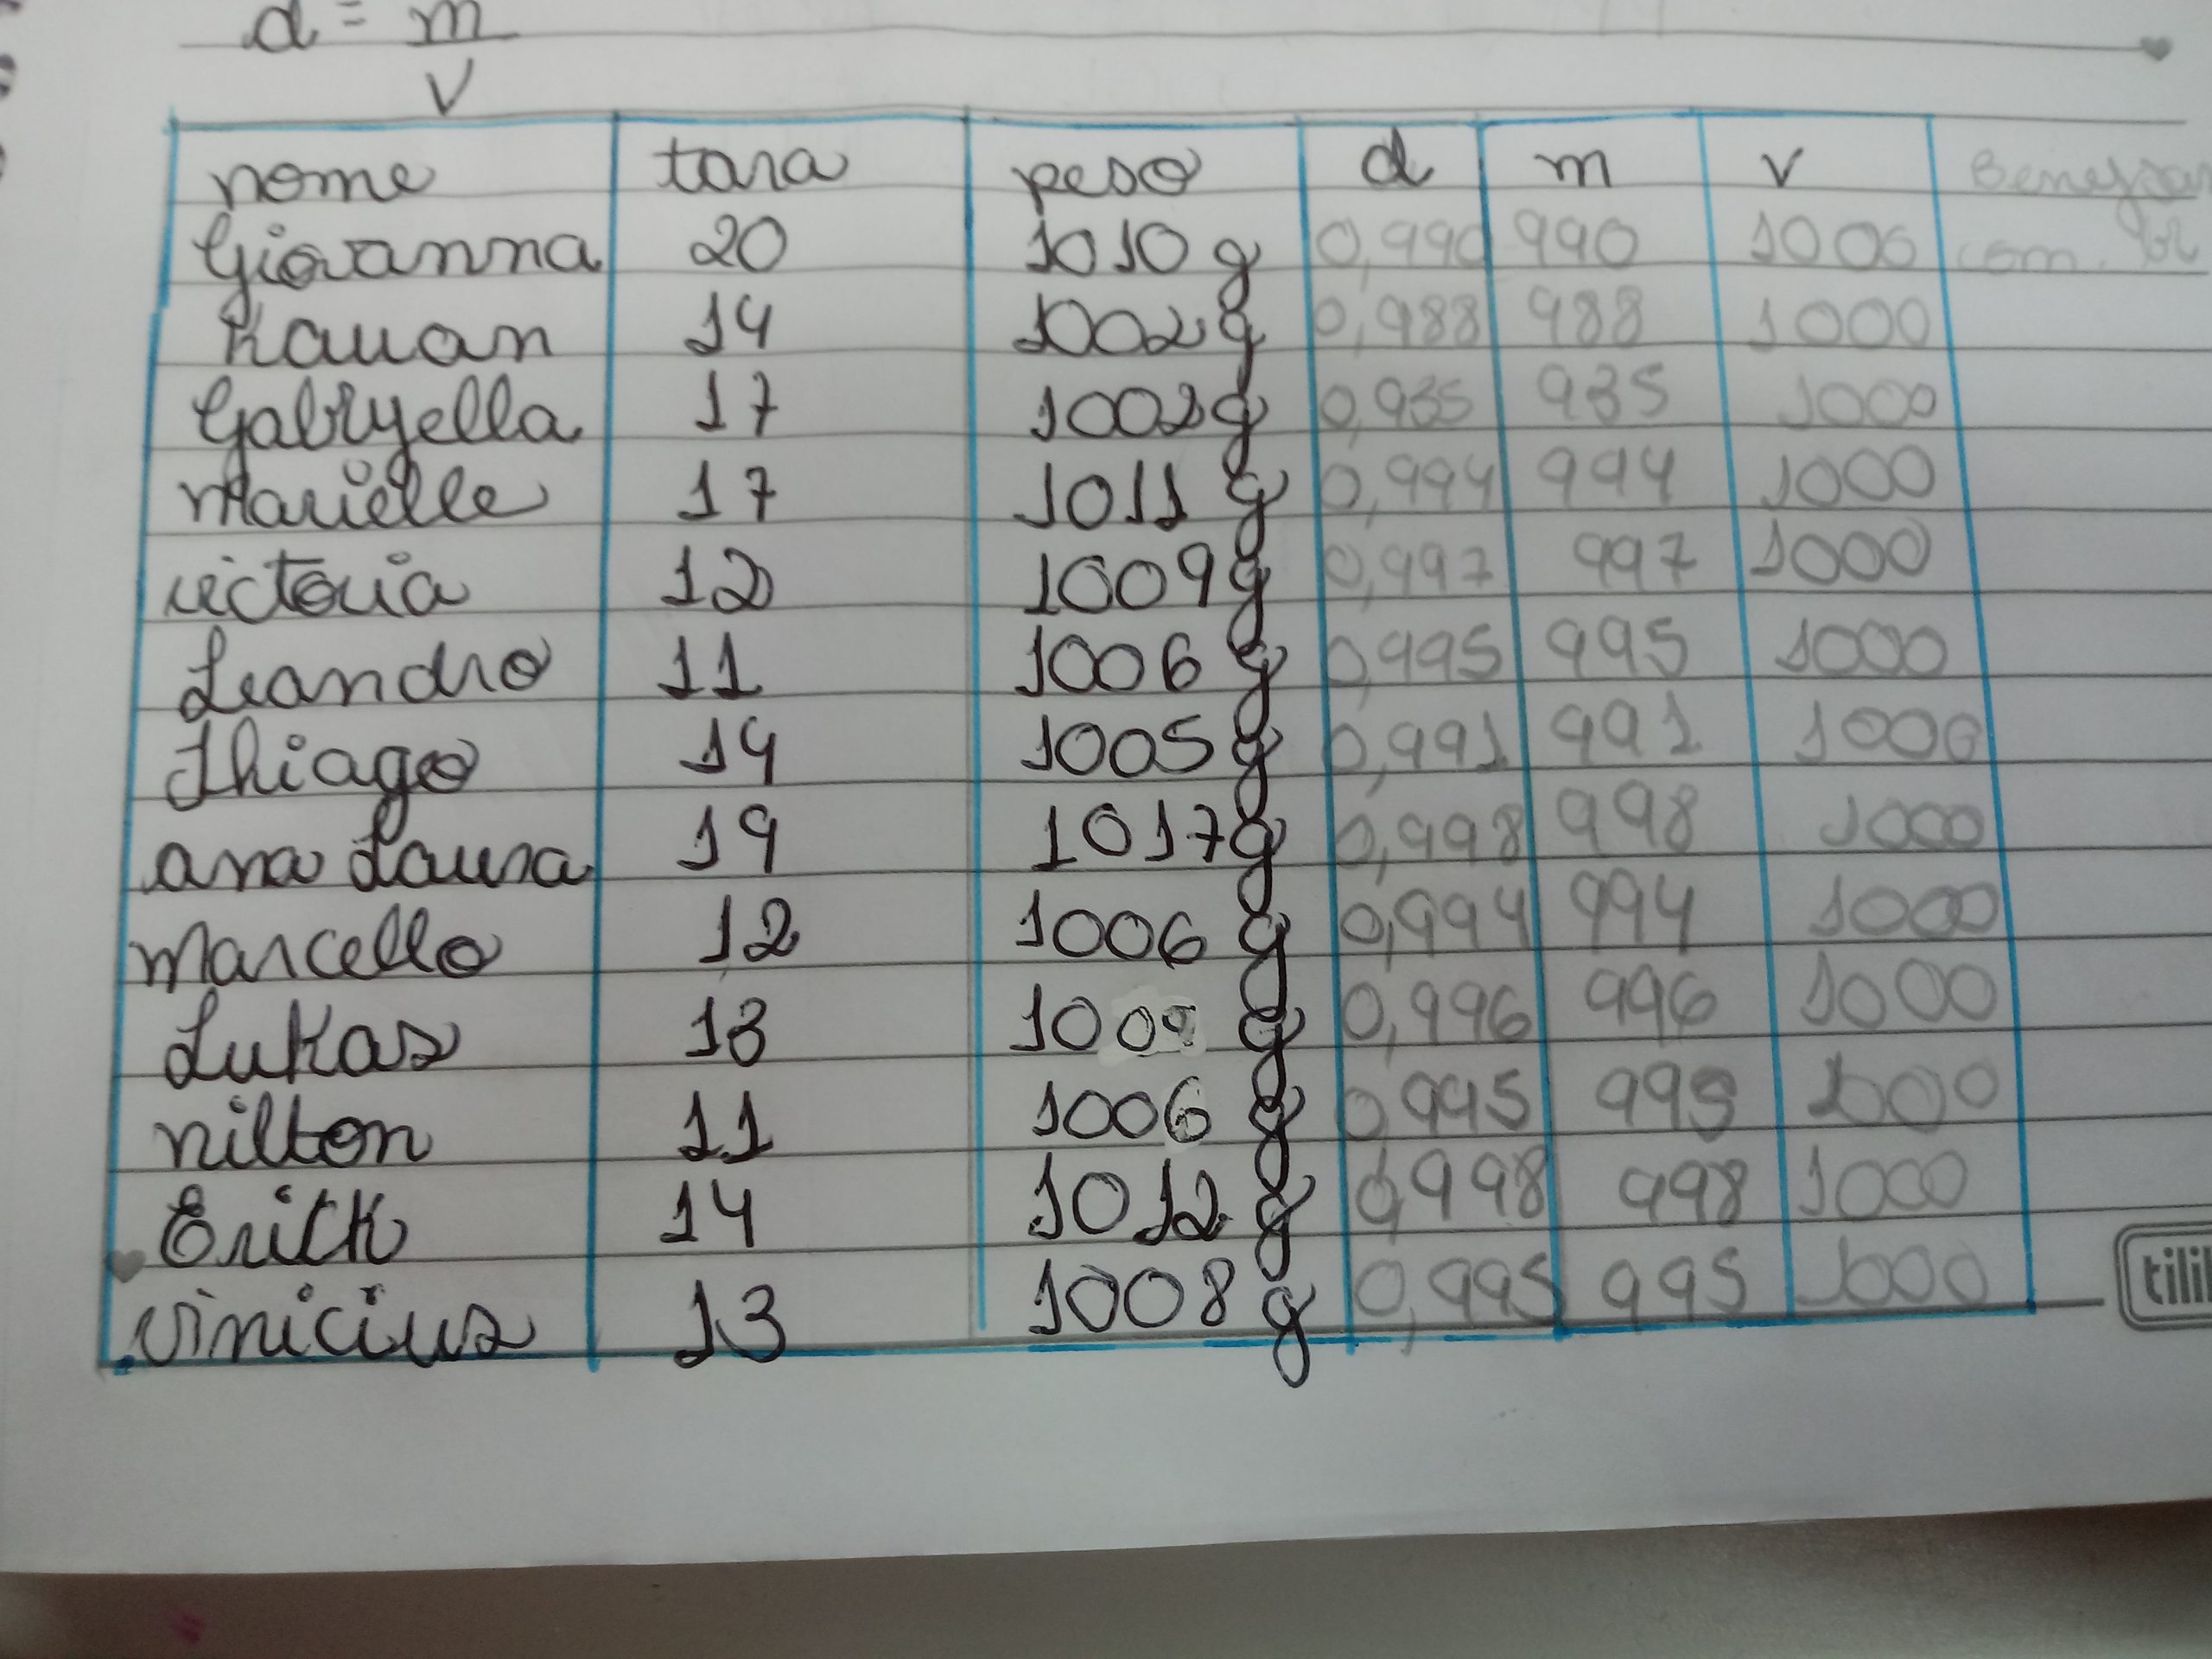 d = m
v
nome tara peso d m v
Giovanna 20 1010 g 0,990 990 1000 com.
Kauan 14 1002 g 0,988 988 1000
Gabryella 17 1002 g 0,935 935 1000
Marielle 17 1011 g 0,994 994 1000
victoria 12 1009 g 0,997 997 1000
Leandro 11 1006 g 0,995 995 1000
Thiago 14 1005 g 0,991 991 1000
ana Laura 19 1017 g 0,998 998 1000
Marcello 12 1006 g 0,994 994 1000
Lukas 13 1009 g 0,996 996 1000
nilton 11 1006 g 0,995 995 1000
Erick 14 1012 g 0,998 998 1000
vinicius 13 1008 g 0,995 995 1000
tilib